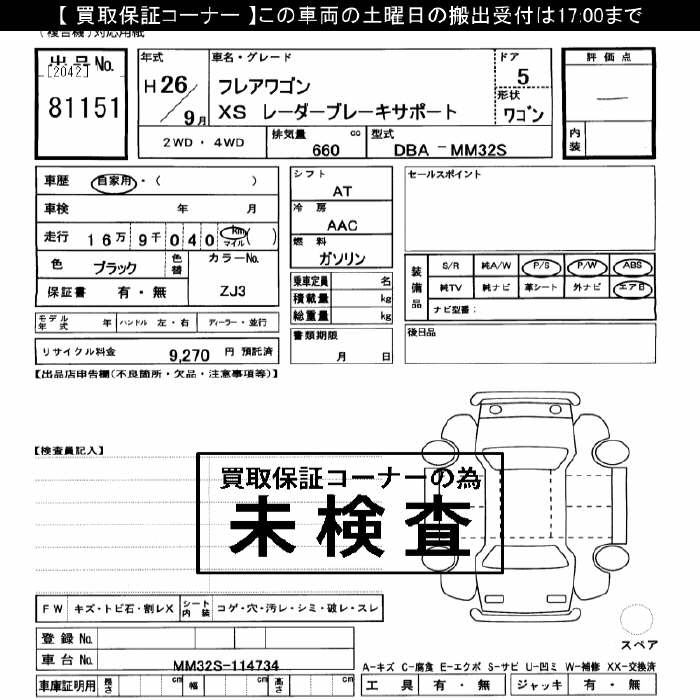 【 買取保証コーナー 】この車両の土曜日の搬出受付は17:00まで
(複合機)対応用紙
出品No.
[2042]
81151
年式
H 26
9月
車名・グレード
フレアワゴン
XS レーダーブレーキサポート
ドア
5
形状
ワゴン
評価点
—
内装
2WD・4WD
排気量
cc
660
型式
DBA - MM32S
車歴 自家用・( )
車検 年 月
走行 16万9千040 km マイル ( )
色 ブラック 色替
カラーNo.
ZJ3
保証書 有・無
モデル年式 年 ハンドル 左・右 ディーラー・並行
リサイクル料金 9,270 円 預託済
シフト
AT
冷房
AAC
燃料
ガソリン
乗車定員 名
積載量 kg
総重量 kg
書類期限
月 日
セールスポイント
装備品
S/R 純A/W P/S P/W ABS
純TV 純ナビ 革シート 外ナビ エアB
ナビ型番:
後日品
【出品店申告欄(不良箇所・欠品・注意事項等)】
【検査員記入】
買取保証コーナーの為
未検査
FW キズ・トビ石・割レX シート内装 コゲ・穴・汚レ・シミ・破レ・スレ
登録No.
車台No. MM32S-114734
車庫証明用 長さ cm 幅 cm 高さ cm
スペア
A-キズ C-腐食 E-エクボ S-サビ U-凹ミ W-補修 XX-交換済
工具 有・無 ジャッキ 有・無